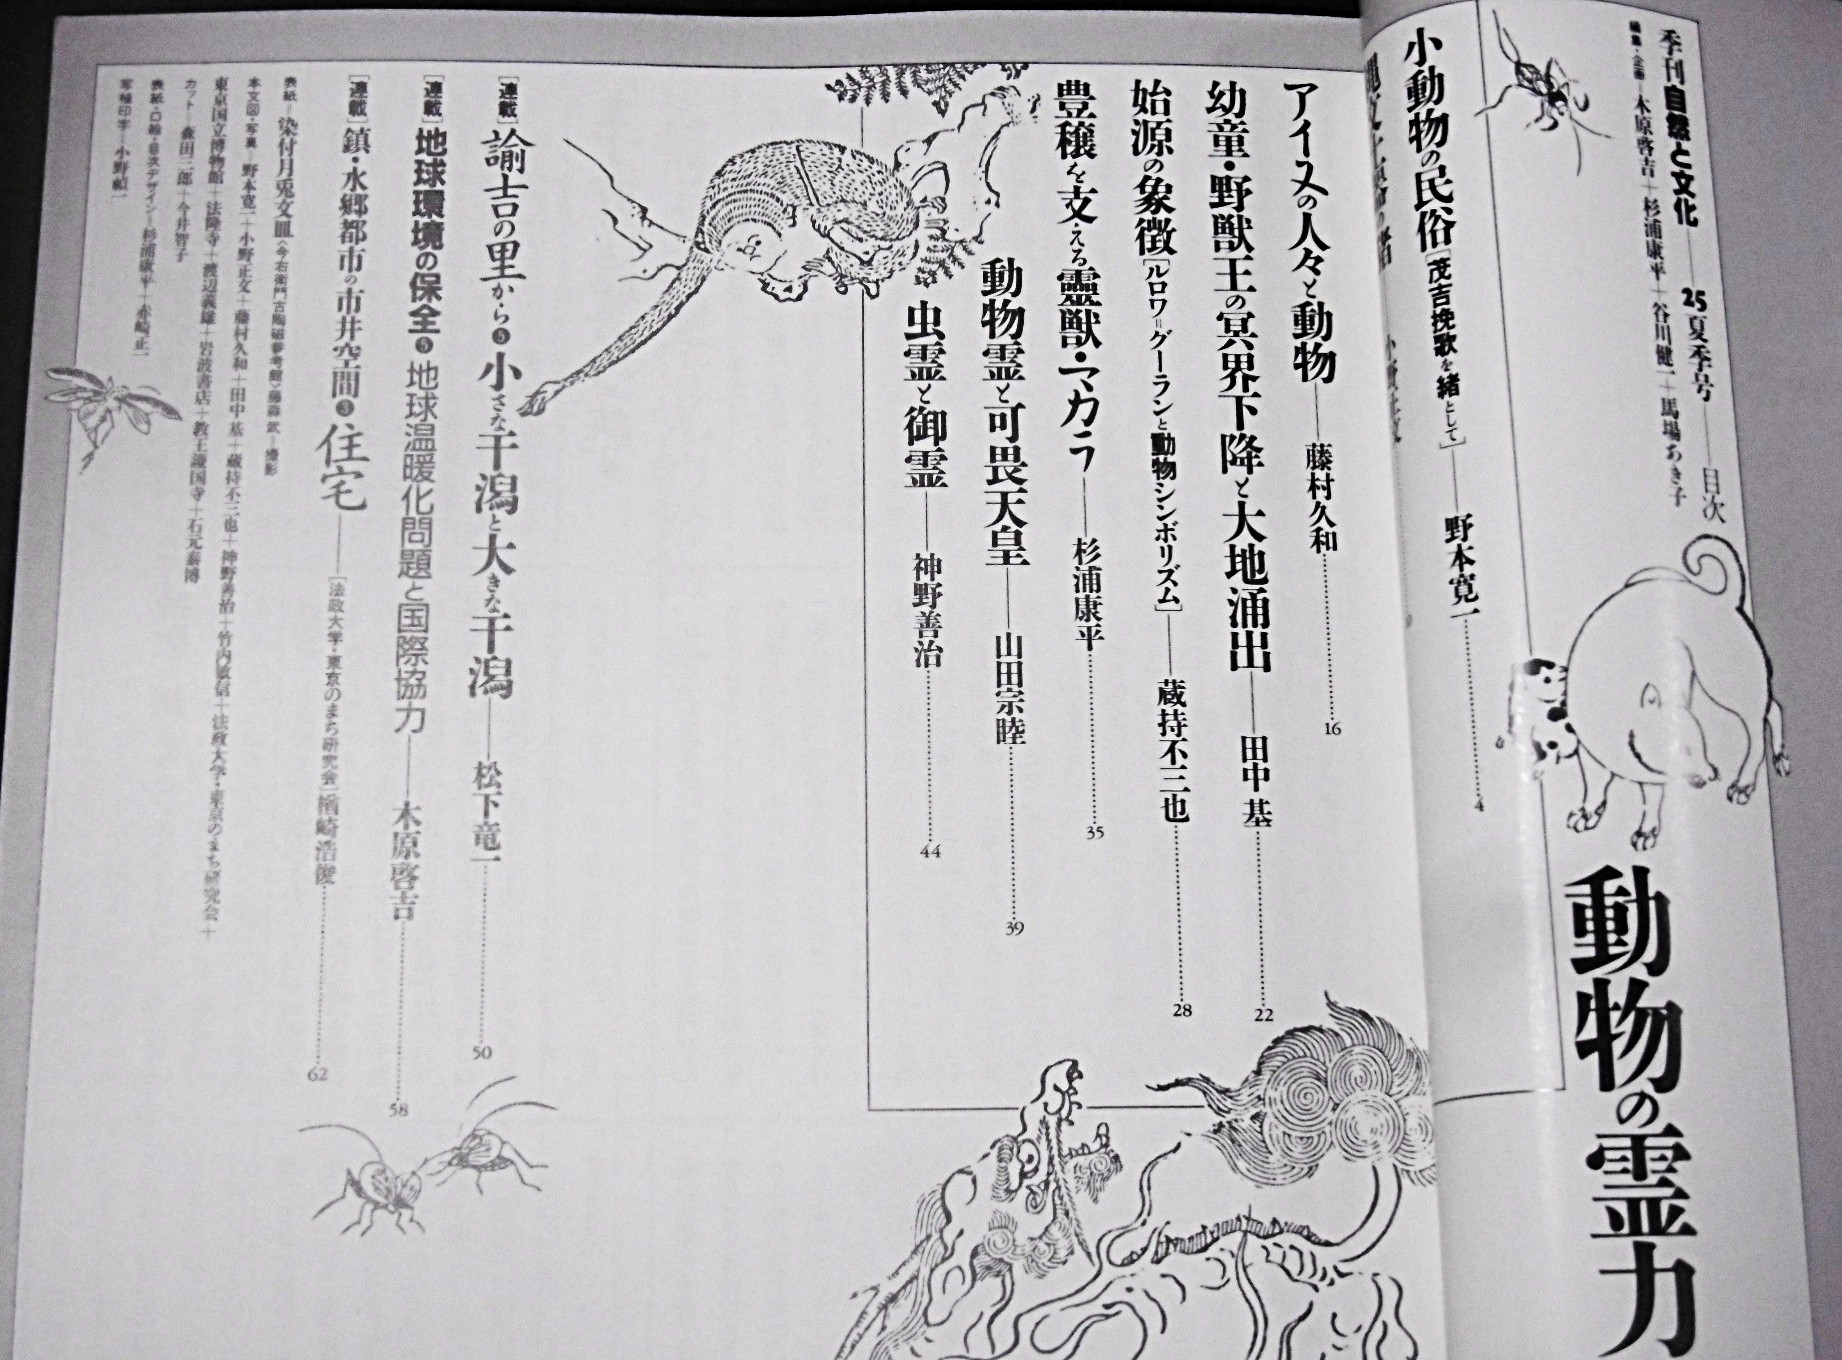 季刊自然と文化──25夏季号──目次
編集・企画─木原啓吉+杉浦康平+谷川健一+馬場あき子
動物の霊力
小動物の民俗[茂吉挽歌を緒として]──野本寛一……4
アイヌの人々と動物──藤村久和……16
幼童・野獣王の冥界下降と大地涌出──田中 基……22
始源の象徴[ルロワ=グーランと動物シンボリズム]──蔵持不三也……28
豊穣を支える霊獣・マカラ──杉浦康平……35
動物霊と可畏天皇──山田宗睦……39
虫霊と御霊──神野善治……44
[連載]諭吉の里から❺小さな干潟と大きな干潟──松下竜一……50
[連載]地球環境の保全❺地球温暖化問題と国際協力──木原啓吉……58
[連載]鎮・水郷都市の市井空間❸住宅──[法政大学・東京のまち研究会]楢崎浩俊……62
表紙─染付月兎文皿〈今右衛門古陶磁参考館〉藤森 武─撮影
本文図・写真─野本寛一+小野正文+藤村久和+田中基+蔵持不三也+神野善治+竹内敏信+法政大学・東京のまち研究会+
東京国立博物館+法隆寺+渡辺義雄+岩波書店+教王護国寺+石元泰博
カット─森田三郎+今井智子
表紙・口絵・目次デザイン─杉浦康平+赤崎正一
写植印字─小野禎一